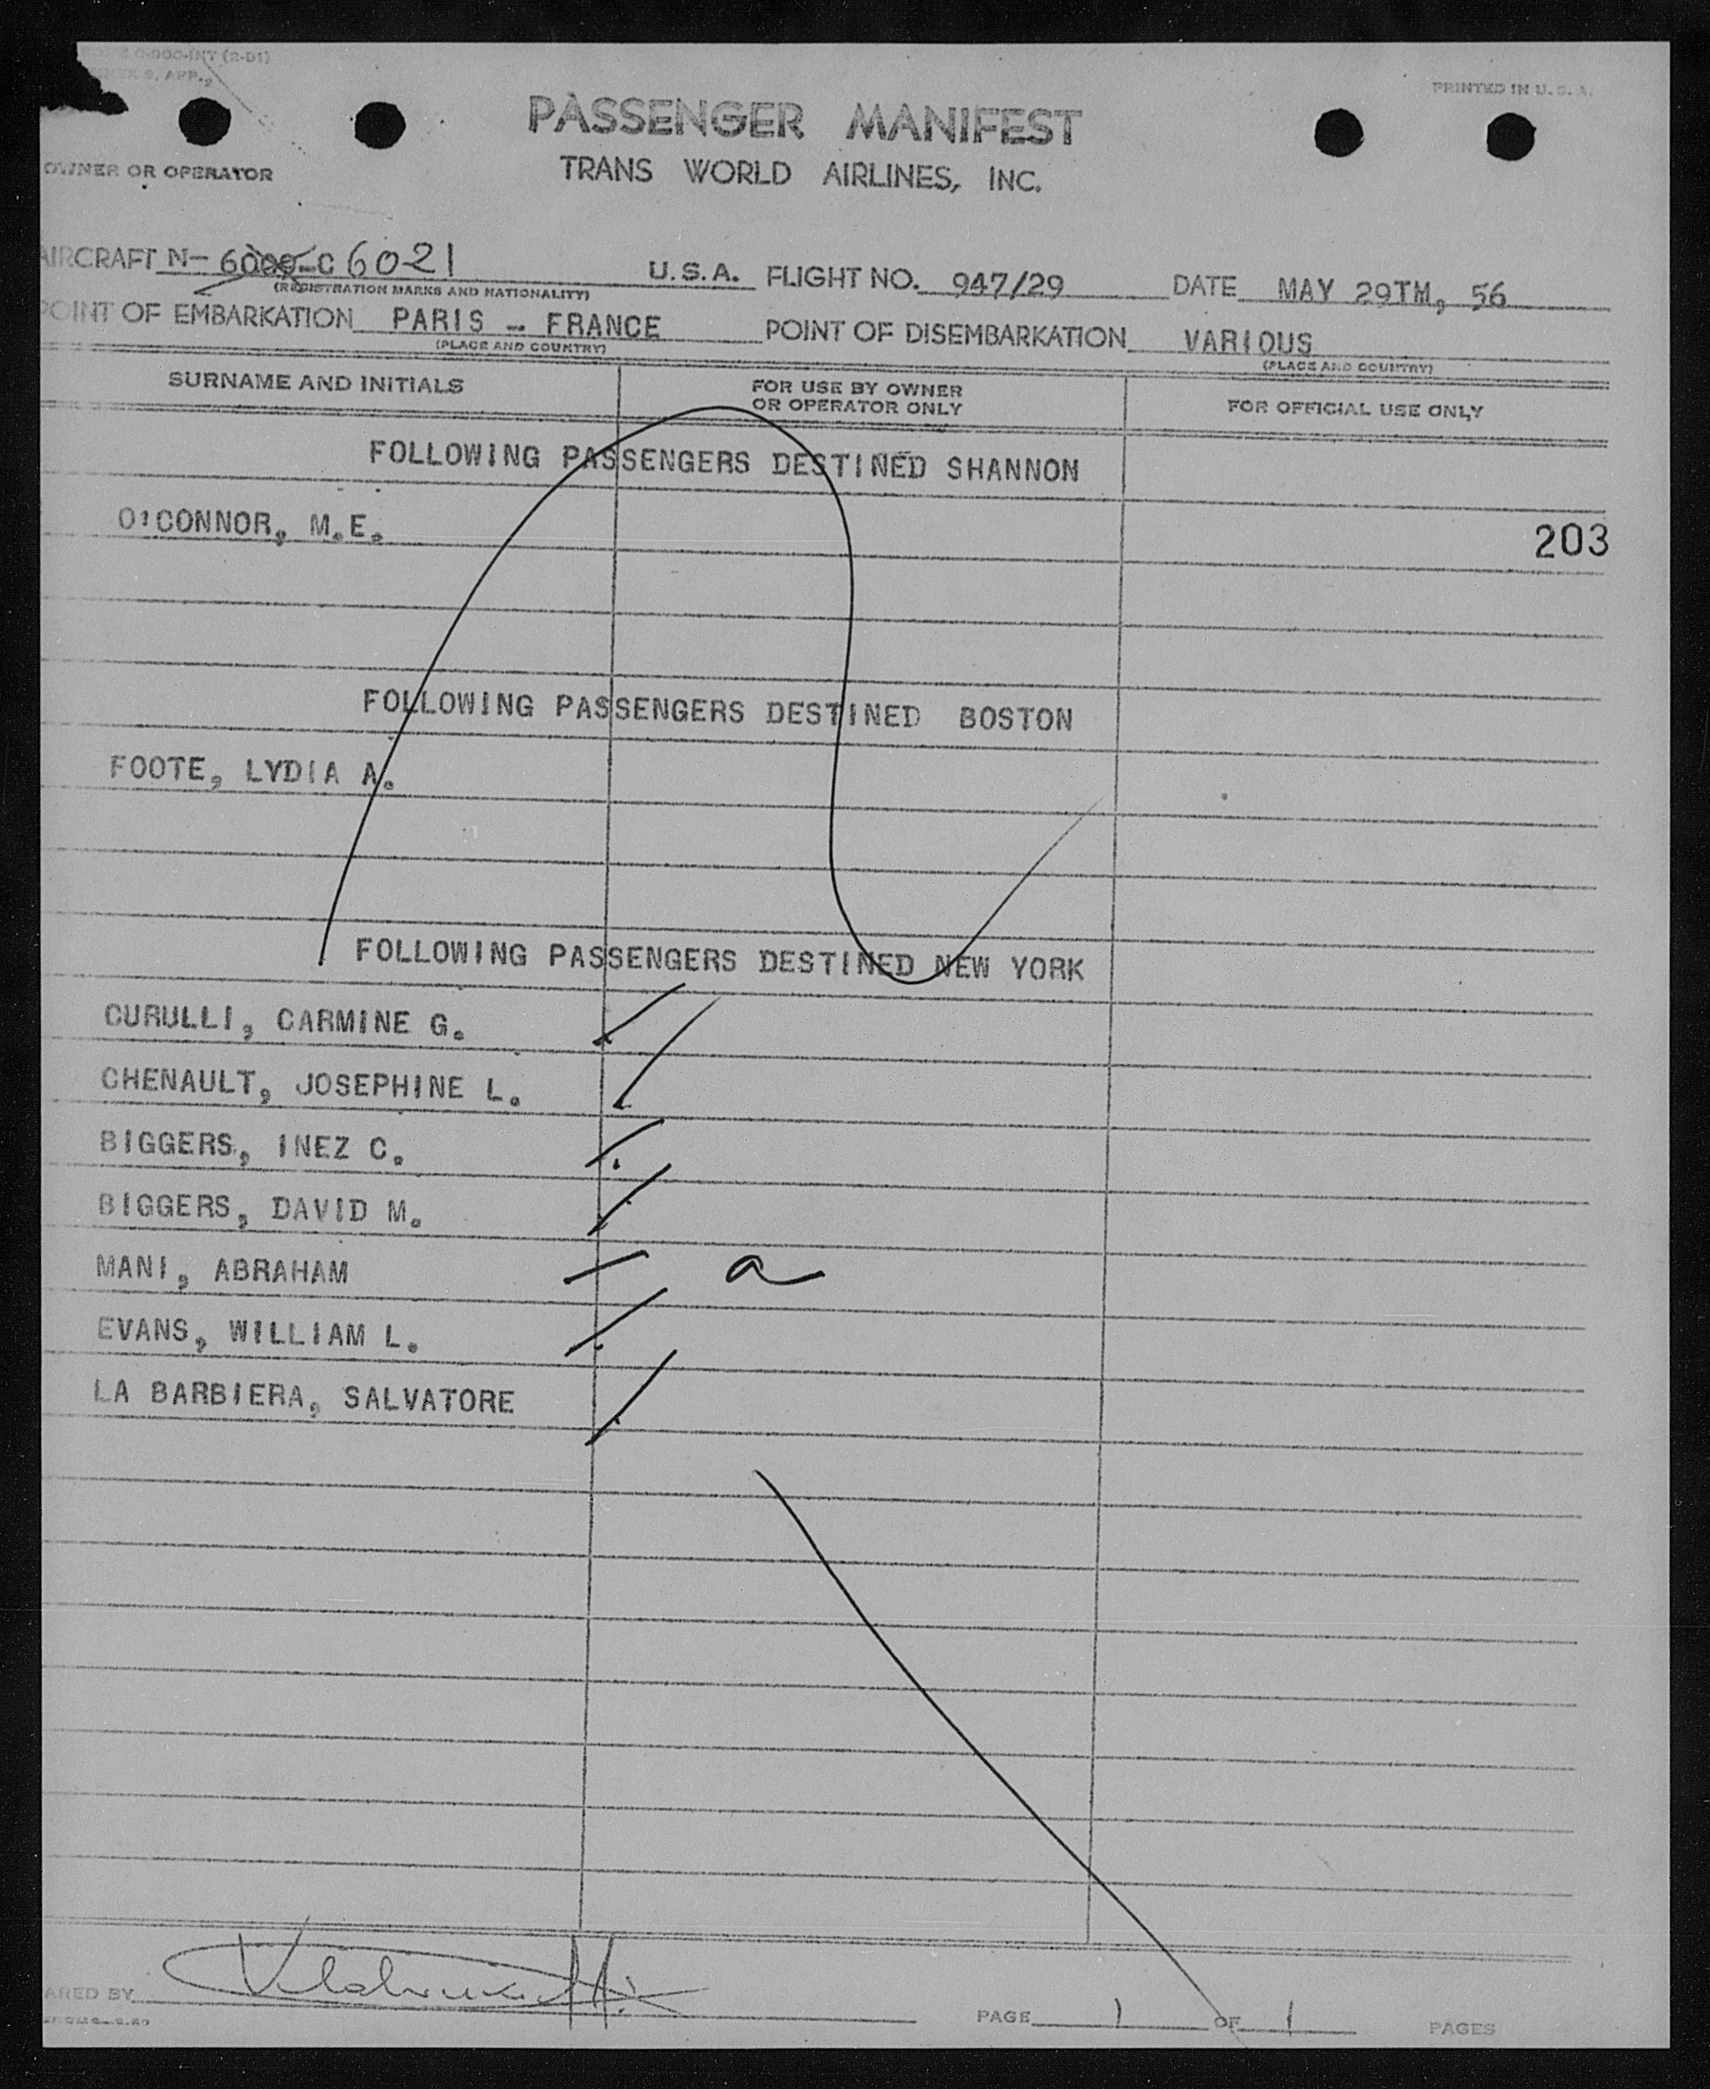 PRINTED IN U.S.A.
PASSENGER MANIFEST
OWNER OR OPERATOR
TRANS WORLD AIRLINES, INC.
AIRCRAFT N- 6000-C 6021 U.S.A. FLIGHT NO. 947/29 DATE MAY 29TM, 56
(REGISTRATION MARKS AND NATIONALITY)
POINT OF EMBARKATION PARIS - FRANCE POINT OF DISEMBARKATION VARIOUS
(PLACE AND COUNTRY) (PLACE AND COUNTRY)
SURNAME AND INITIALS FOR USE BY OWNER OR OPERATOR ONLY FOR OFFICIAL USE ONLY
FOLLOWING PASSENGERS DESTINED SHANNON
O'CONNOR, M.E. 203
FOLLOWING PASSENGERS DESTINED BOSTON
FOOTE, LYDIA A.
FOLLOWING PASSENGERS DESTINED NEW YORK
CURULLI, CARMINE G.
CHENAULT, JOSEPHINE L.
BIGGERS, INEZ C.
BIGGERS, DAVID M.
MANI, ABRAHAM a
EVANS, WILLIAM L.
LA BARBIERA, SALVATORE
ARED BY
PAGE 1 OF 1 PAGES